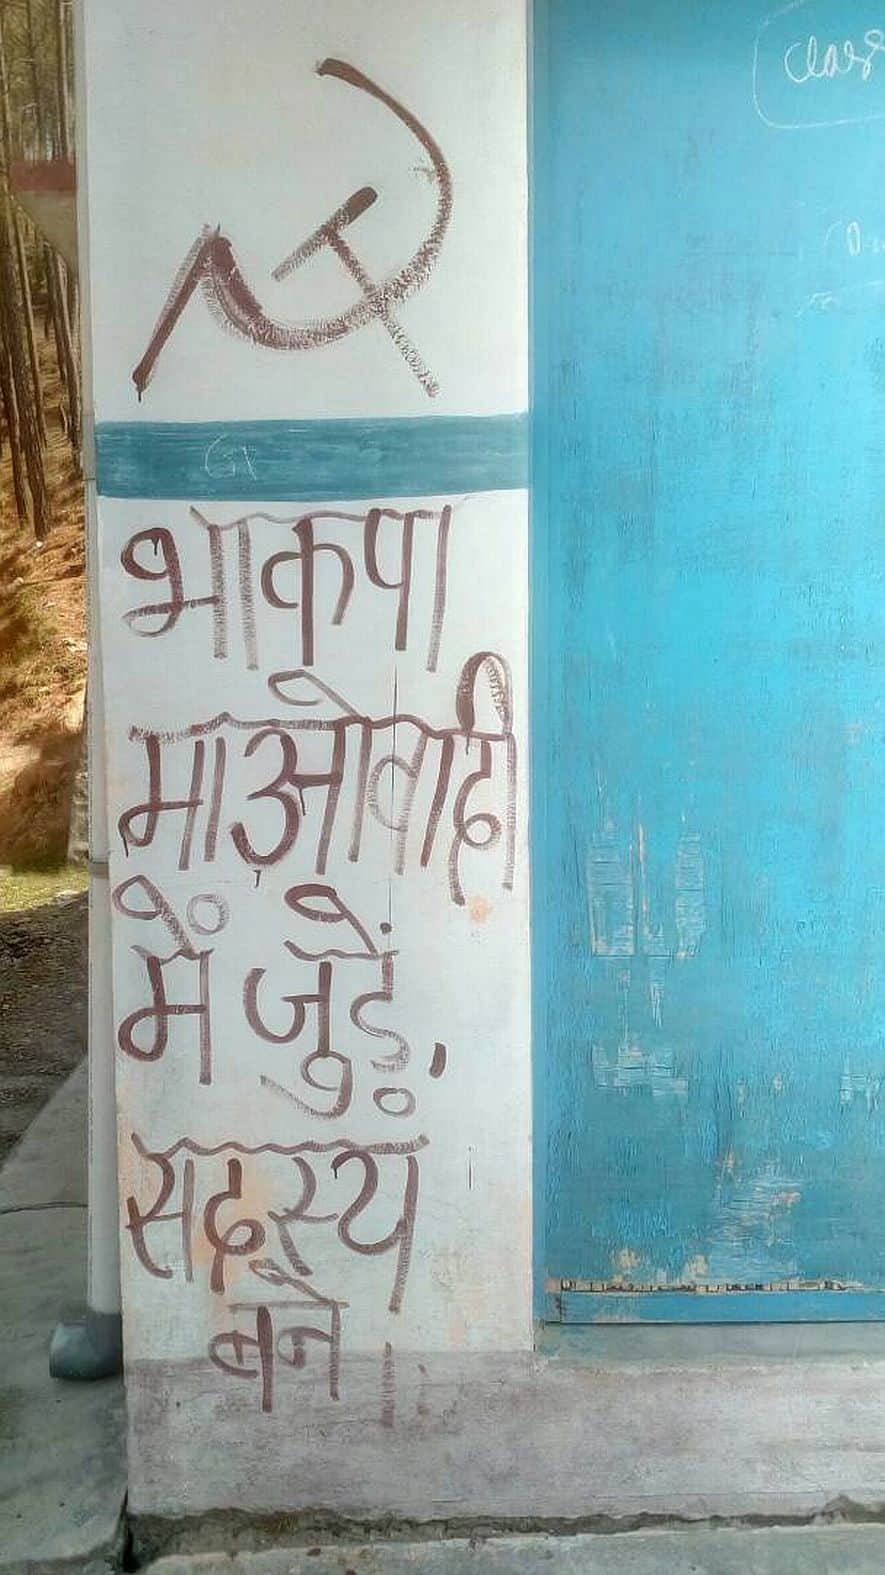 भाकपा
माओवादी
में जुड़ें,
सदस्य
बने।
class